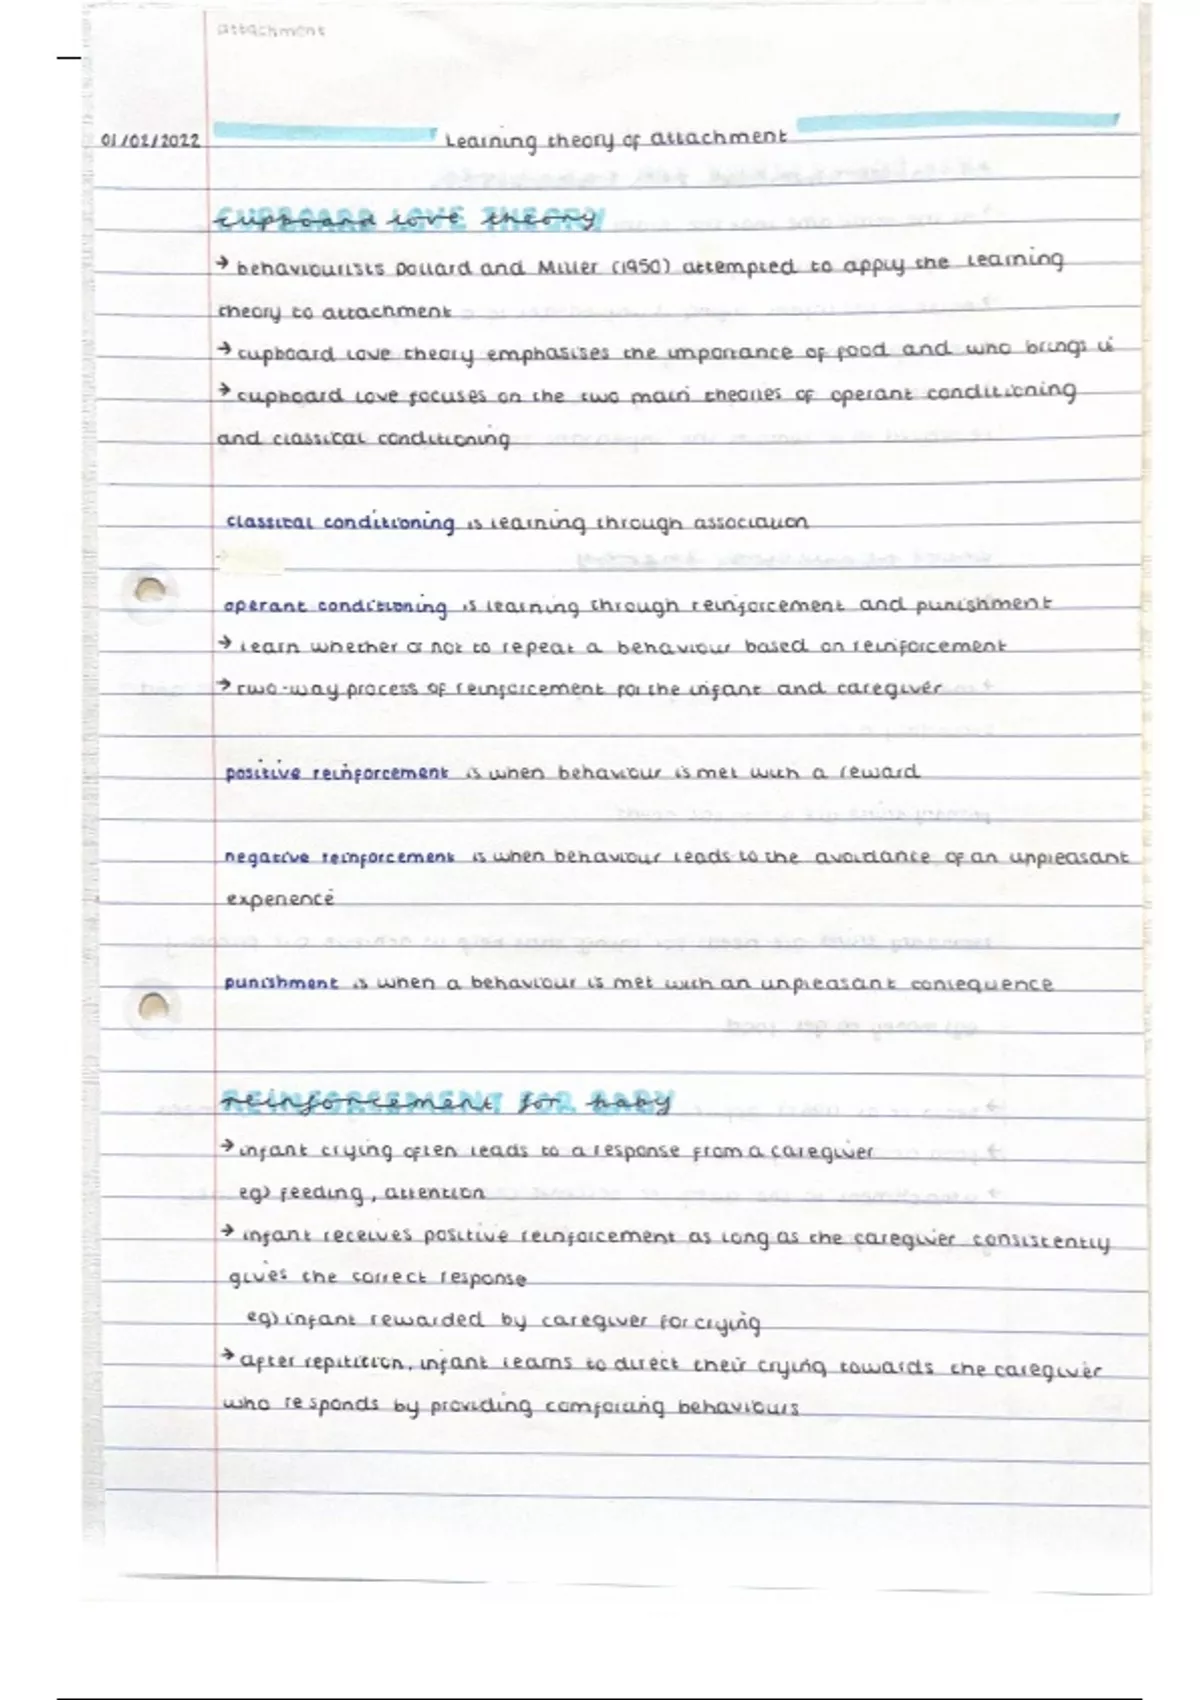 attachment
01/02/2022 Learning theory of attachment
cupboard love theory
→ behaviourists Dollard and Miller (1950) attempted to apply the learning
theory to attachment
→ cupboard love theory emphasises the importance of food and who brings
→ cupboard love focuses on the two main theories of operant conditioning
and classical conditioning
classical conditioning is learning through association
operant conditioning is learning through reinforcement and punishment
→ learn whether or not to repeat a behaviour based on reinforcement
→ two-way process of reinforcement for the infant and caregiver
positive reinforcement is when behaviour is met with a reward
negative reinforcement is when behaviour leads to the avoidance of an unpleasant
experience
punishment is when a behaviour is met with an unpleasant consequence
reinforcement for baby
→ infant crying often leads to a response from a caregiver
eg) feeding, attention
→ infant receives positive reinforcement as long as the caregiver consistently
gives the correct response
eg) infant rewarded by caregiver for crying
→ after repitition, infant learns to direct their crying towards the caregiver
who responds by providing comforting behaviours